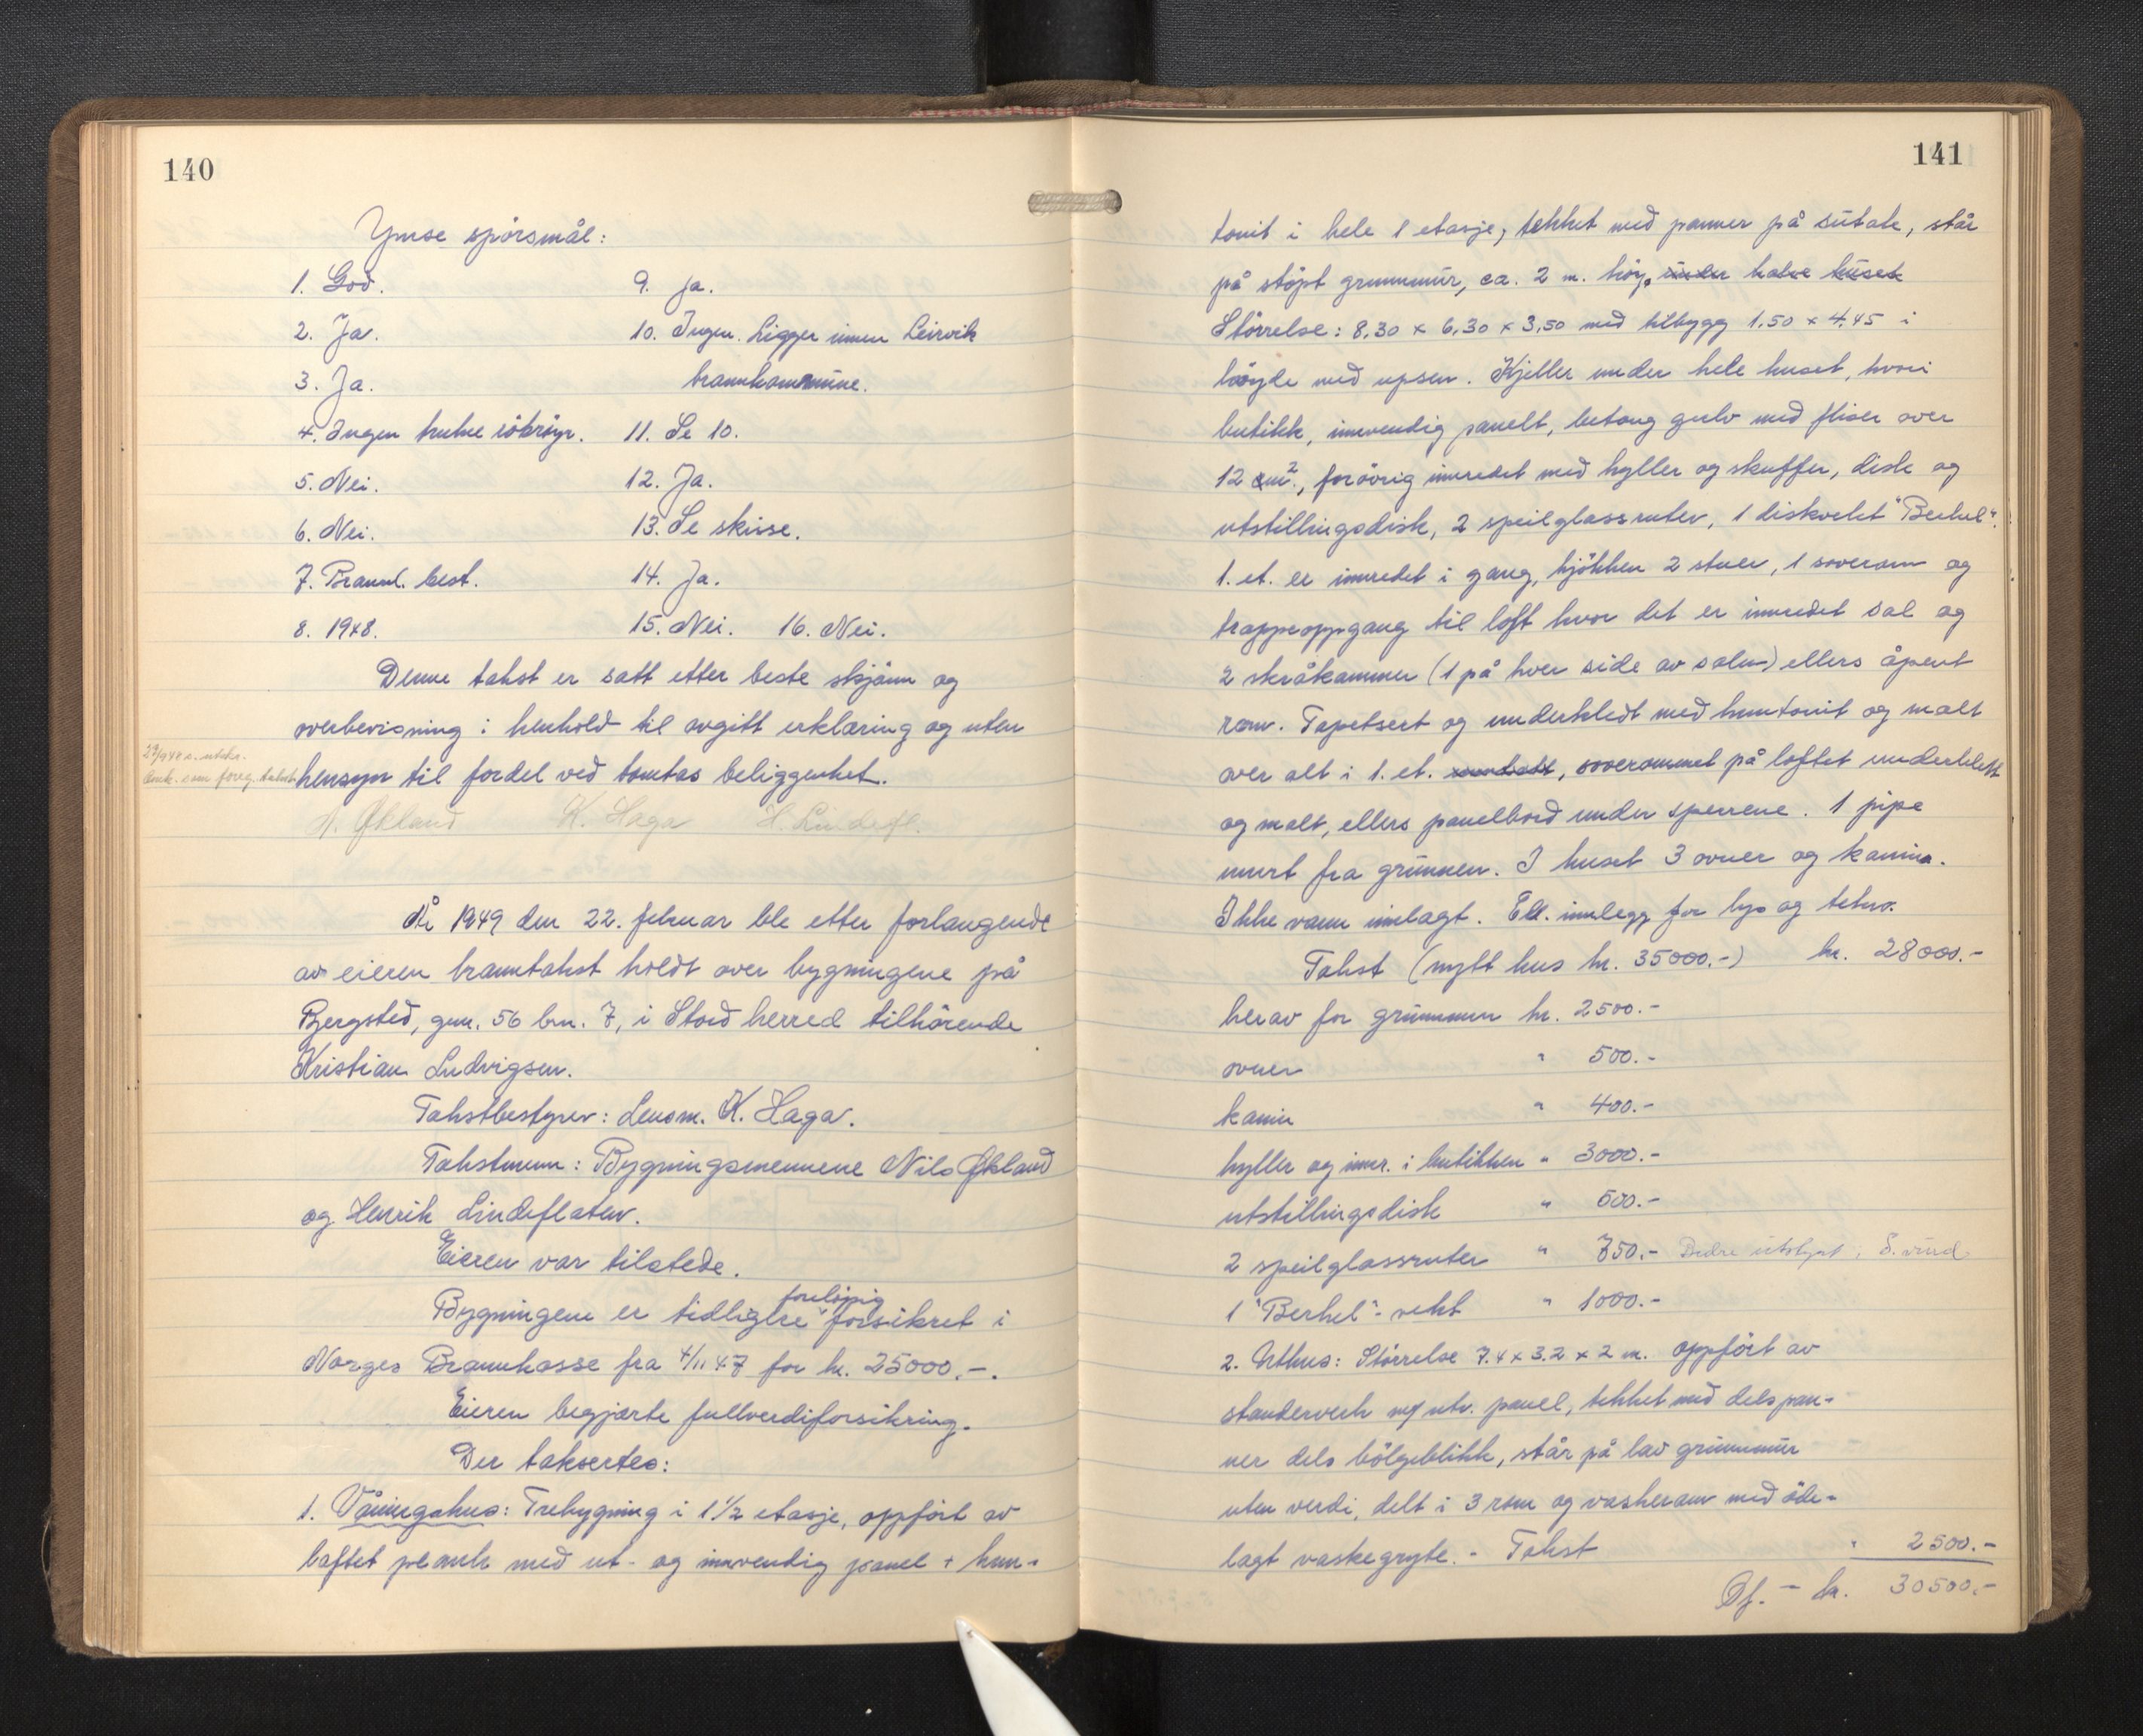 140
Ymse spörsmål:
1. God.
2. Ja.
3. Ja.
4. Ingen trutne iökröyr.
5. Nei.
6. Nei.
7. Brannl. best.
8. 1948.
9. Ja.
10. Ingen. Ligger innen Leirvik
brannkommune.
11. Se 10.
12. Ja.
13. Se skisse.
14. Ja.
15. Nei. 16. Nei.
Denne takst er satt etter beste skjönn og
overbevisning i henhold til avgitt erklæring og uten
hensyn til fordel ved tomtas beliggenhet.
som foreg. takst
N. Økland K. Haga H. Lindefl.
År 1949 den 22. februar ble etter forlangende
av eieren branntakst holdt over bygningene på
Bjergsted, gnr. 56 brn. 7, i Stord herred tilhörende
Kristian Ludvigsen.
Takstbestyrer: Lensm. K. Haga.
Takstmenn: Bygningsmennene Nils Økland
og Henrik Lindeflaten.
Eieren var tilstede.
Bygningene er tidligere foreløpig forsikret i
Norges Brannkasse fra 4/11 47 for kr. 25000.-.
Eieren begjærte fullverdiforsikring.
Der taksertes:
1. Våningshus: Trebygning i 1 1/2 etasje, oppfört av
laftet plank med ut- og innvendig panel + hun-
141
tonit i hele 1 etasje, tekket med panner på sutak, står
på stöpt grunnmur, ca. 2 m. höy. under halve huset
Störrelse: 8,30 x 6,30 x 3,50 med tilbygg 1,50 x 4,45 i
höyde med upsen. Kjeller under hele huset, hvori
butikk, innvendig panelt, betong gulv med fliser over
12 m²., forövrig innredet med hyller og skuffer, disk og
utstillingsdisk, 2 speilglassruter, 1 diskvekt "Berkel".
1. et. er innredet i gang, kjökken 2 stuer, 1 soverom og
trappeoppgang til loft hvor det er innredet sal og
2 skråkammer (1 på hver side av salen) ellers åpent
rom. Tapetsert og underkledt med huntonit og malt
over alt i 1. et. , soverommet på loftet underkledt
og malt, ellers panelbord under sperrene. 1 pipe
murt fra grunnen. I huset 3 ovner og kamin.
Ikke vann innlagt. Ell. innlegg for lys og tekn.
Takst (nytt hus kr. 35000.-) kr. 28000.-
herav for grunnmur kr. 2500.-
ovner " 500.-
kamin " 400.-
hyller og innr. i butikken " 3000.-
utstillingsdisk " 600.-
2 speilglassruter " 750.-
1 "Berkel"-vekt " 1000.-
2. Uthus: Störrelse 7.4 x 3.2 x 2 m. oppfört av
standerverk m/ utv. panel, tekket med dels pan-
ner dels bölgeblikk, står på lav grunnmur
uten verdi, delt i 3 rom og vaskerom med öde-
lagt vaskegryte. - Takst " 2500.-
Of. - kr. 30500.-